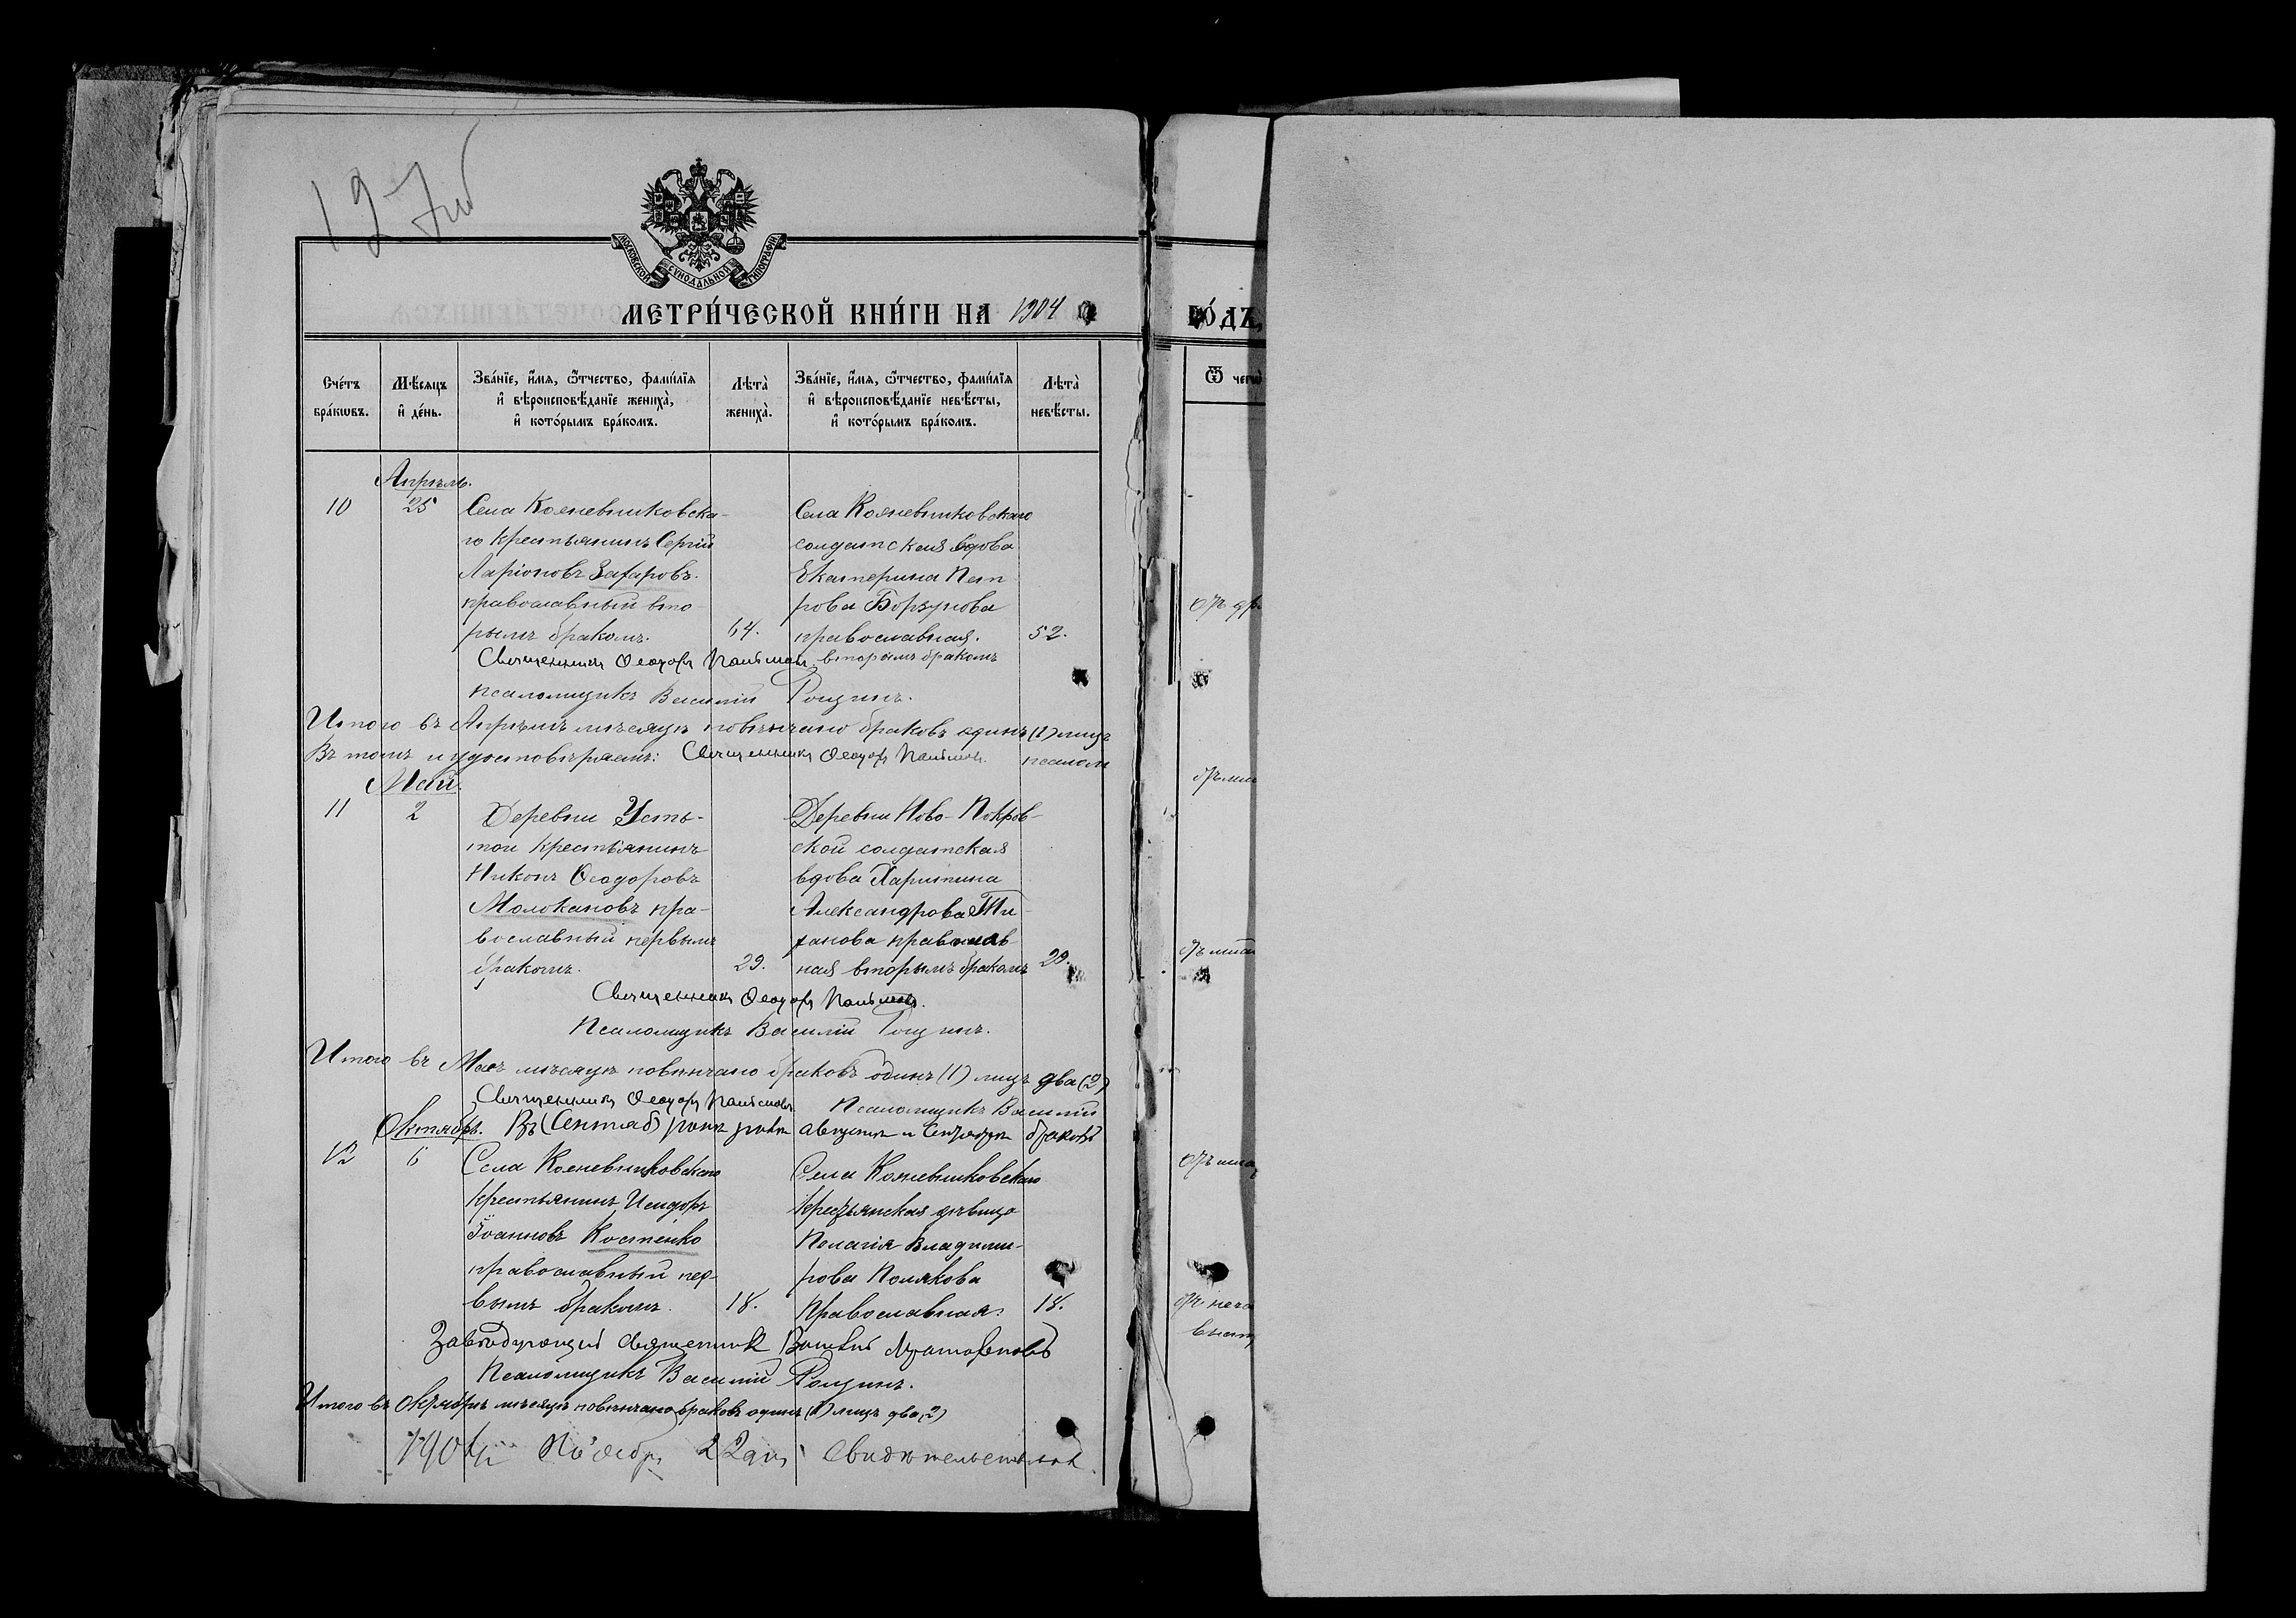 127
МОСКОВСКОЙ СУНОДАЛЬНОЙ ТИПОГРАФІИ
МЕТРИ́ЧЕСКОЙ КНИ́ГИ НА 1904
ГО́ДЪ,
Сче́тъ бра́кωвъ.
Мѣ́сяцъ и҆ де́нь.
Зва́нїе, и҆́мѧ, ѻ҆́тчество, фами́лїѧ и҆ вѣроисповѣ́данїе жениха̀, и҆ кото́рымъ бра́комъ.
Лѣта̀ жениха̀.
Зва́нїе, и҆́мѧ, ѻ҆́тчество, фами́лїѧ и҆ вѣроисповѣ́данїе невѣ́сты, и҆ кото́рымъ бра́комъ.
Лѣта̀ невѣ́сты.
Ѿ чегѡ̀
Апрѣль.
10
25
Села Кожевниковска-
го крестьянинъ Сергій
Ларіоновъ Захаровъ.
православный вто-
рымъ бракомъ.
64.
Села Кожевниковскаго
солдатская вдова
Екатерина Пет
рова Борзунова
православная.
вторымъ бракомъ
52.
Священникъ Ѳеодоръ
Псаломщикъ Василій Рощинъ.
Итого въ Апрѣлѣ мѣсяцѣ повѣнчано браковъ одинъ (1) лицъ
Въ томъ и удостовѣряемъ: Священникъ Ѳеодоръ псалом
Май.
11
2
Деревни Усть-
той крестьянинъ
Никонъ Ѳеодоровъ
Молокановъ пра-
вославный первымъ
бракомъ.
29.
Деревни Ново-Покров-
ской солдатская
вдова Харитина
Александрова Ти-
ханова православ-
ная вторымъ бракомъ
29.
Священникъ Ѳеодоръ
Псаломщикъ Василій Рощинъ.
Итого въ Маѣ мѣсяцѣ повѣнчано браковъ одинъ (1) лицъ два (2)
Священникъ Ѳеодоръ Псаломщикъ Василій
Октябрь. августѣ и Сентябрѣ браковъ
12
6
Села Кожевниковскаго
крестьянинъ Исидоръ
Іоанновъ Костенко
православный пер-
вымъ бракомъ.
18.
Села Кожевниковскаго
крестьянская дѣвица
Пелагія Владими-
рова Полякова
Православная.
18.
Завѣдующій священникъ
Псаломщикъ Василій Рощинъ.
Итого въ Октябрѣ мѣсяцѣ повѣнчано браковъ одинъ (1) лицъ два (2)
1904 Ноября 22 дня